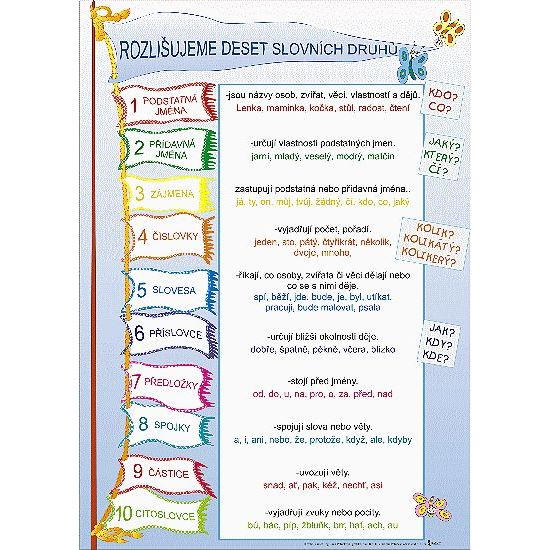 ROZLIŠUJEME DESET SLOVNÍCH DRUHŮ
1 PODSTATNÁ JMÉNA
-jsou názvy osob, zvířat, věcí, vlastností a dějů.
Lenka, maminka, kočka, stůl, radost, čtení
KDO?
CO?
2 PŘÍDAVNÁ JMÉNA
-určují vlastnosti podstatných jmen.
jarní, mladý, veselý, modrý, matčin
JAKÝ?
KTERÝ?
ČÍ?
3 ZÁJMENA
zastupují podstatná nebo přídavná jména..
já, ty, on, můj, tvůj, žádný, čí, kdo, co, jaký
4 ČÍSLOVKY
-vyjadřují počet, pořadí.
jeden, sto, pátý, čtyřikrát, několik,
dvoje, mnoho,
KOLIK?
KOLIKÁTÝ?
KOLIKERÝ?
5 SLOVESA
-říkají, co osoby, zvířata či věci dělají nebo
co se s nimi děje.
spí, běží, jde, bude, je, byl, utíkat,
pracuji, bude malovat, psala
6 PŘÍSLOVCE
-určují bližší okolnosti děje.
dobře, špatně, pěkně, včera, blízko
JAK?
KDY?
KDE?
7 PŘEDLOŽKY
-stojí před jmény.
od, do, u, na, pro, o, za, před, nad
8 SPOJKY
-spojují slova nebo věty.
a, i, ani, nebo, že, protože, když, ale, kdyby
9 ČÁSTICE
-uvozují věty.
snad, ať, pak, kéž, nechť, asi
10 CITOSLOVCE
-vyjadřují zvuky nebo pocity.
bú, bác, píp, žbluňk, brr, haf, ach, au